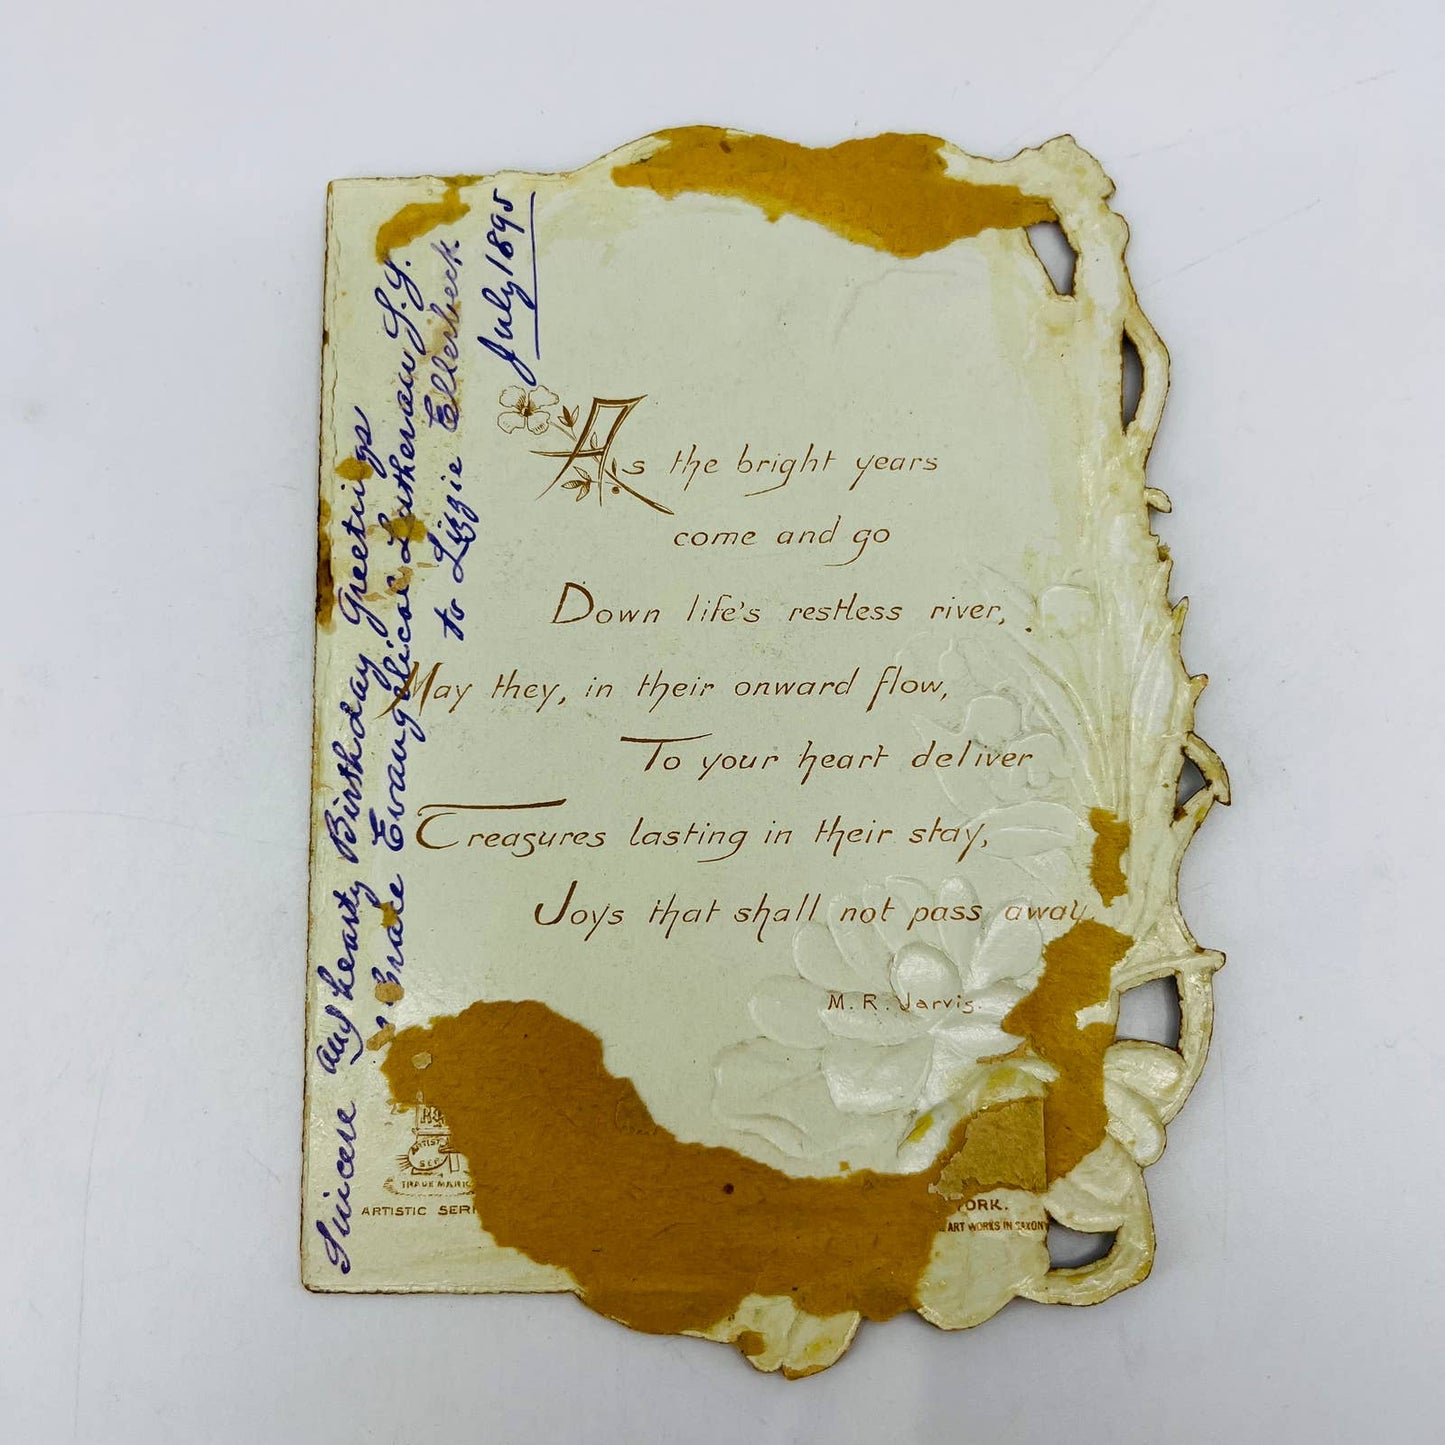 Sincere and hearty Birthday Greetings
Grace Evangelical Lutheran S.S.
to Lizzie Ellerbeck
July 1895
As the bright years
come and go
Down life's restless river,
May they, in their onward flow,
To your heart deliver
Treasures lasting in their stay,
Joys that shall not pass away.
M. R. Jarvis.
ARTIST
SER
TRADE MARK
ARTISTIC SERI
YORK.
ART WORKS IN SAXONY